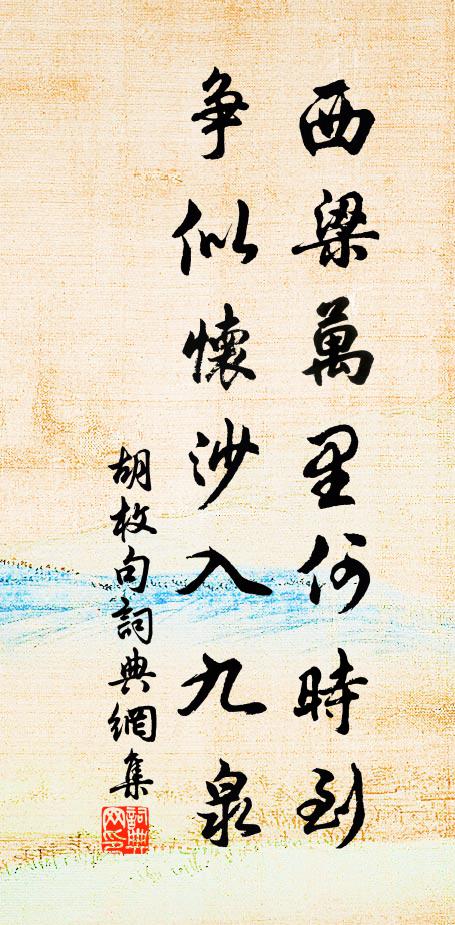 西梁萬里何時到
爭似懷沙入九泉
胡枚句詞典網集